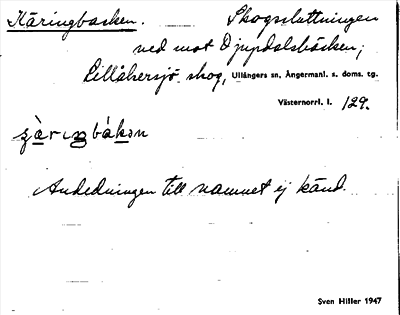 Käringbacken. Skogssluttningen
ned mot Djupdalsbäcken;
Lillåhersjö skog, Ullångers sn, Ångermanl. s. doms. tg.
Västernorrl. l. 129.
Anledningen till namnet ej känd.
Sven Hiller 1947